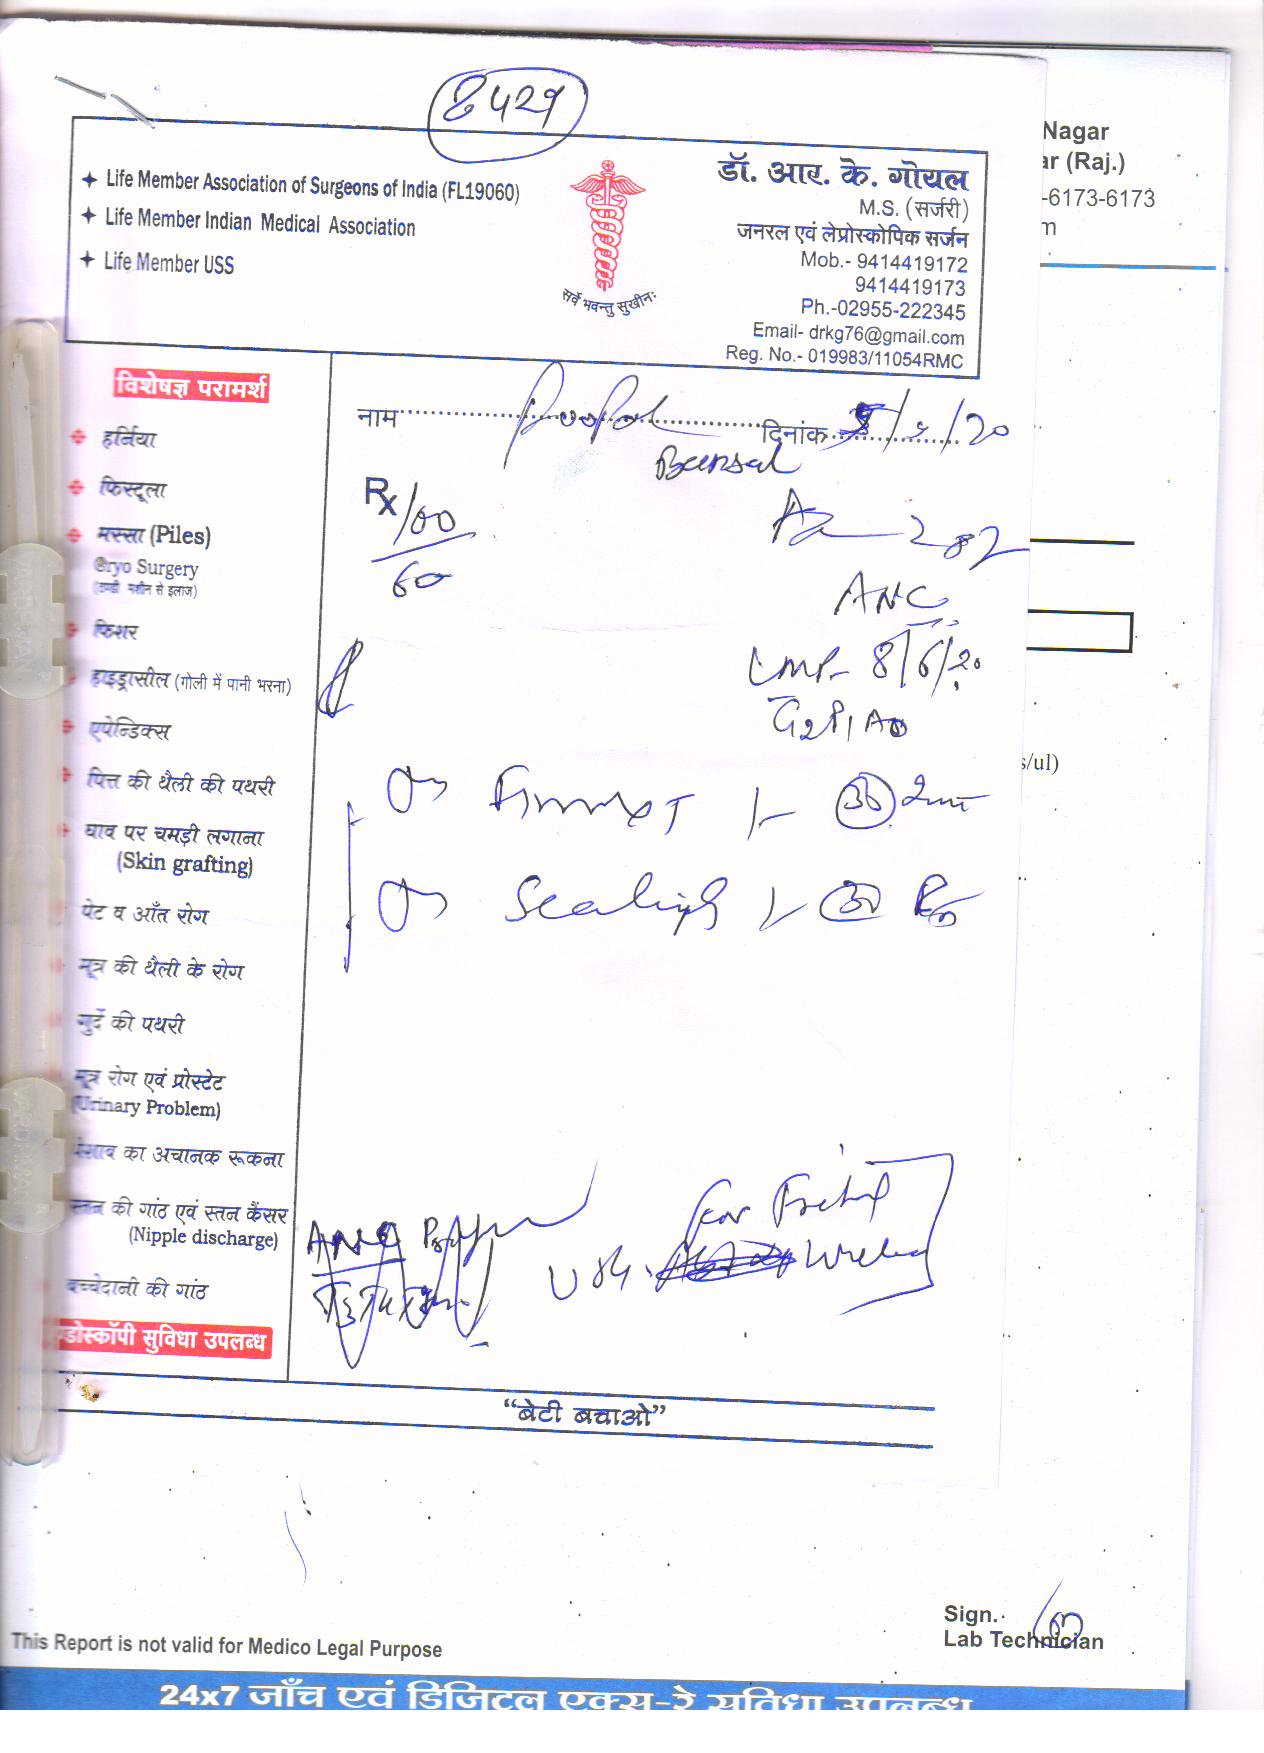 8429
Life Member Association of Surgeons of India (FL19060)
Life Member Indian Medical Association
Life Member USS
सर्वे भवन्तु सुखीनः
डॉ. आर. के. गोयल
M.S. (सर्जरी)
जनरल एवं लेप्रोस्कोपिक सर्जन
Mob.- 9414419172
9414419173
Ph.-02955-222345
Email- drkg76@gmail.com
Reg. No.- 019983/11054RMC
Nagar
ar (Raj.)
-6173-6173
m
विशेषज्ञ परामर्श
हर्निया
फिस्टूला
मस्सा (Piles)
Cryo Surgery
(ठण्डी मशीन से इलाज)
फिशर
हाइड्रासील (गोली में पानी भरना)
एपेन्डिक्स
पित्त की थैली की पथरी
घाव पर चमड़ी लगाना
(Skin grafting)
पेट व आँत रोग
मूत्र की थैली के रोग
गुर्दे की पथरी
मूत्र रोग एवं प्रोस्टेट
(Urinary Problem)
पेशाब का अचानक रूकना
स्तन की गांठ एवं स्तन कैंसर
(Nipple discharge)
बच्चेदानी की गांठ
डोस्कॉपी सुविधा उपलब्ध
नाम
दिनांक /20
Bansal
Rx 100
60
ANC
LMP- 8/6/20
G2P1A0
s/ul)
ANC
USG.
"बेटी बचाओ"
Sign.
Lab Technician
This Report is not valid for Medico Legal Purpose
24x7 जाँच एवं डिजिटल एक्स-रे सुविधा उपलब्ध